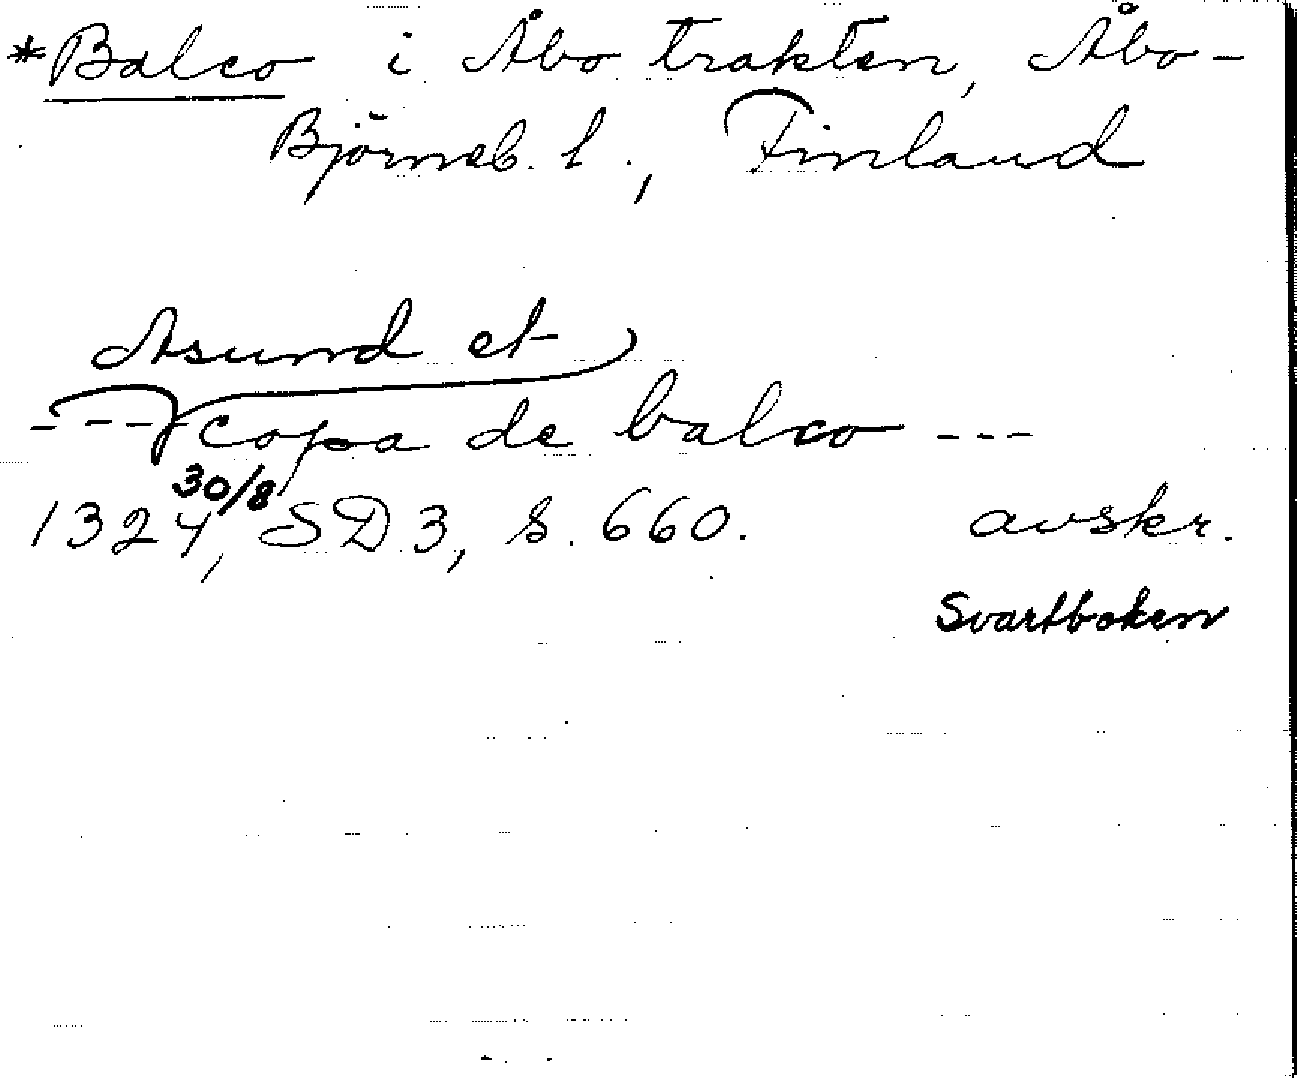 *Balco i Åbo trakten, Åbo-
Björneb. l., Finland
Asund et
--- copa de balco ---
30/8
1324, SD 3, s. 660. avskr.
Svartboken